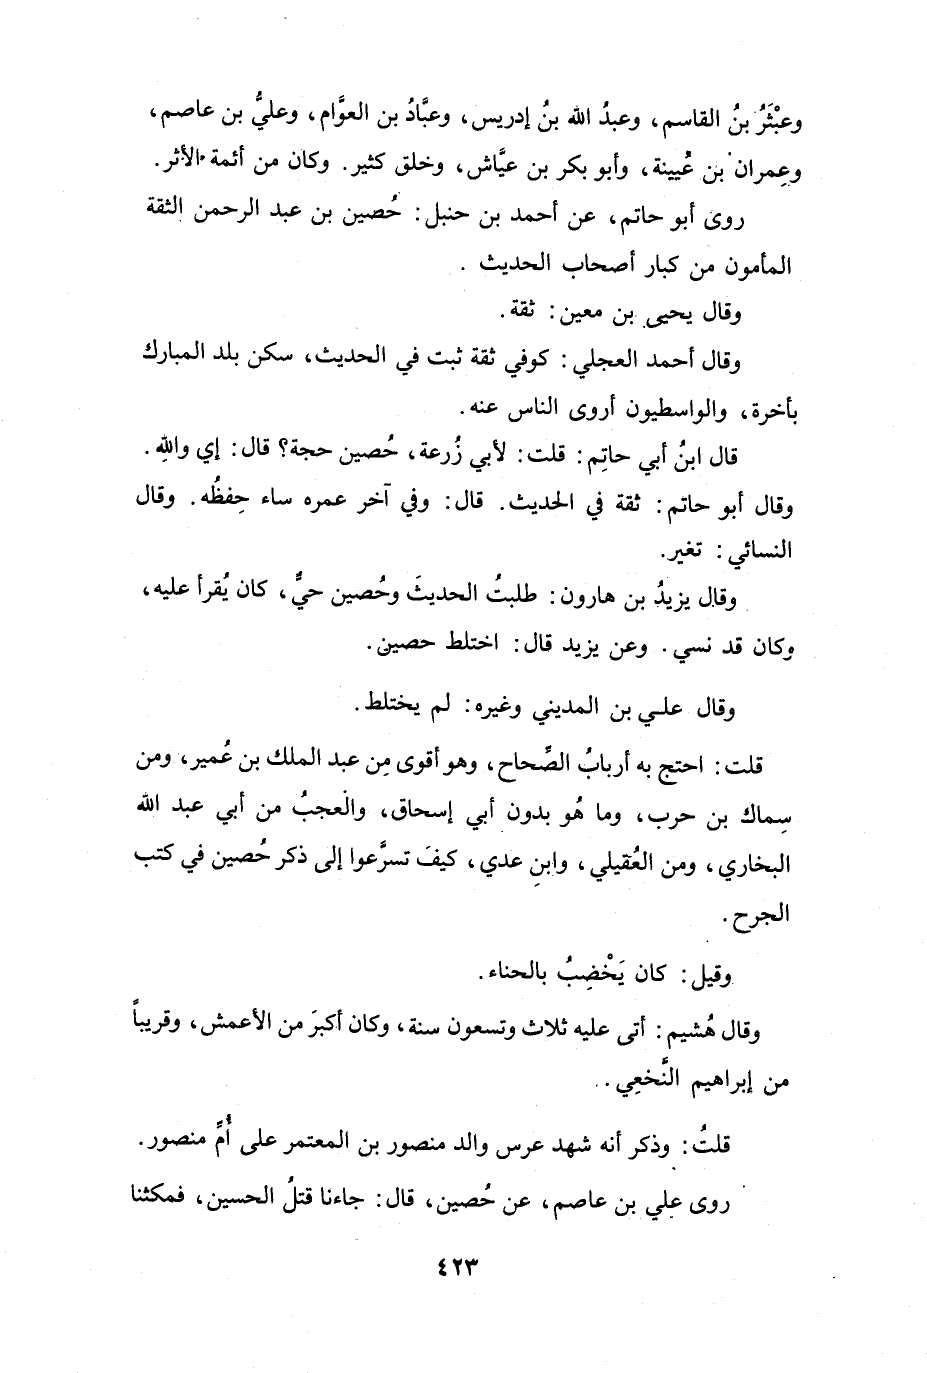 وعبْثَرُ بنُ القاسم، وعبدُ الله بنُ إدريس، وعبَّادُ بن العوَّام، وعليُّ بن عاصم،
وعِمران بن عُيينة، وأبو بكر بن عيَّاش، وخلق كثير. وكان من أئمة الأثر.
روى أبو حاتم، عن أحمد بن حنبل: حُصين بن عبد الرحمن الثقة
المأمون من كبار أصحاب الحديث .
وقال يحيى بن معين: ثقة.
وقال أحمد العجلي: كوفي ثقة ثبت في الحديث، سكن بلد المبارك
بأخرة، والواسطيون أروى الناس عنه.
قال ابنُ أبي حاتِم: قلت: لأبي زُرعة، حُصين حجة؟ قال: إي واللهِ.
وقال أبو حاتم: ثقة في الحديث. قال: وفي آخر عمره ساء حِفظُه. وقال
النسائي: تغير.
وقال يزيدُ بن هارون: طلبتُ الحديثَ وحُصين حيٌّ، كان يُقرأ عليه،
وكان قد نسي. وعن يزيد قال: اختلط حصين.
وقال علي بن المديني وغيره: لم يختلط.
قلت: احتج به أربابُ الصِّحاح، وهو أقوى مِن عبد الملك بن عُمير، ومن
سِماك بن حرب، وما هُو بدون أبي إسحاق، والعجبُ من أبي عبد الله
البخاري، ومن العُقيلي، وابنِ عدي، كيفَ تسرَّعوا إلى ذكر حُصين في كتب
الجرح.
وقيل: كان يَخْضِبُ بالحناء.
وقال هُشيم: أتى عليه ثلاث وتسعون سنة، وكان أكبرَ من الأعمش، وقريباً
من إبراهيم النَّخعِي.
قلتُ: وذكر أنه شهد عرس والد منصور بن المعتمر على أُمِّ منصور.
روى علي بن عاصم، عن حُصين، قال: جاءنا قتلُ الحسين، فمكثنا
٤٢٣